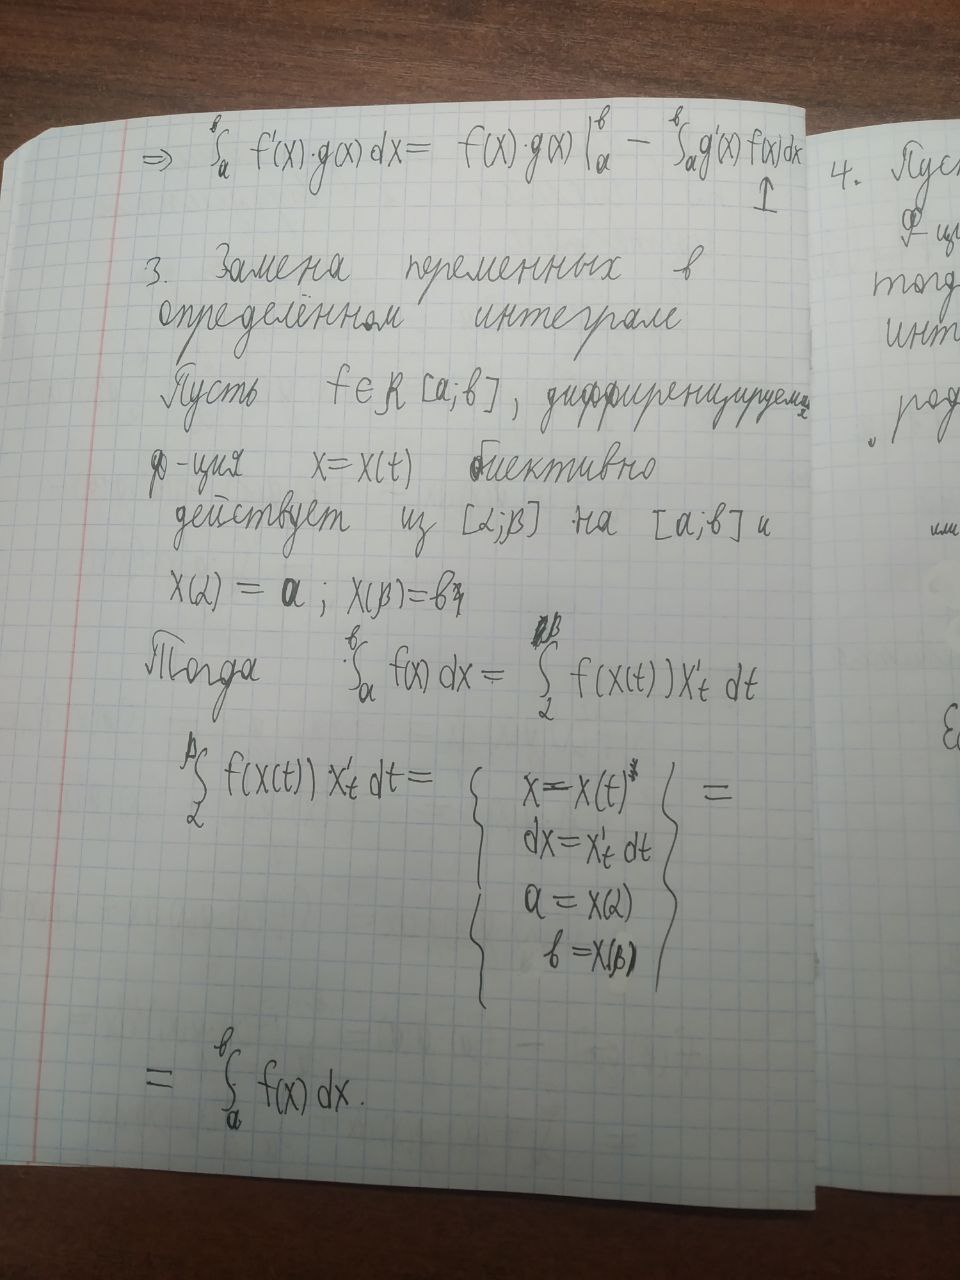 ⇒ ∫ₐᵇ f'(x)·g(x) dx = f(x)·g(x) |ₐᵇ − ∫ₐᵇ g'(x) f(x) dx
↑
3. Замена переменных в
определённом интеграле
Пусть f ∈ R [a;b], диффиренцируемая
ф-ция x = x(t) биективно
действует из [α;β] на [a;b] и
x(α) = a ; x(β) = b
Тогда ∫ₐᵇ f(x) dx = ∫_α^β f(x(t)) x'ₜ dt
∫_α^β f(x(t)) x'ₜ dt = { x = x(t)
dx = x'ₜ dt
a = x(α)
b = x(β) } =
= ∫ₐᵇ f(x) dx.
4. Пуст
ф-ци
тогд
инт
или